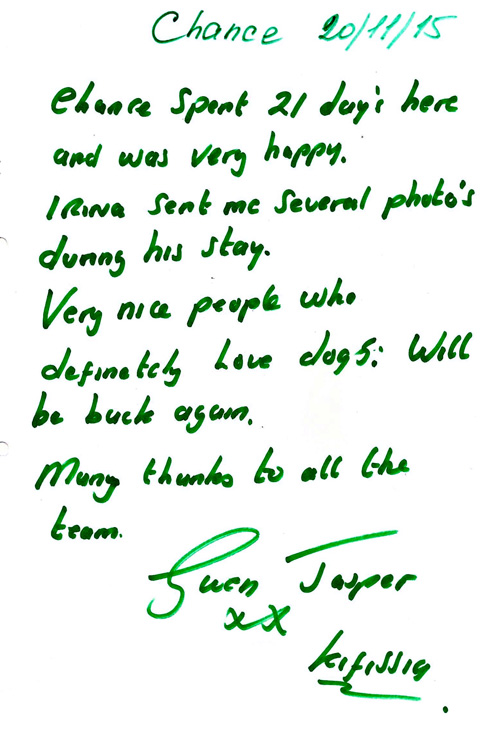 Chance 20/11/15
Chance Spent 21 day's here
and was very happy.
IRINA Sent me Several photo's
during his stay.
Very nice people who
definetely Love dogs. Will
be back again.
Many thanks to all the
team.
Gwen Jasper
xx
Kifissia